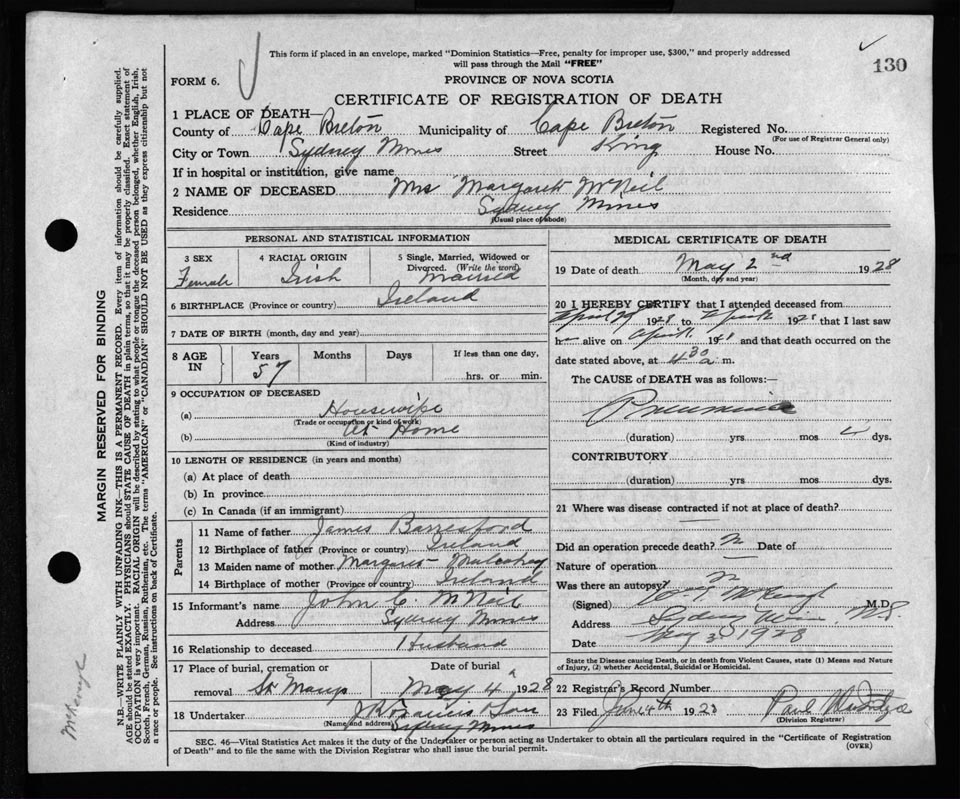 This form if placed in an envelope, marked "Dominion Statistics—Free, penalty for improper use, $300," and properly addressed
will pass through the Mail "FREE"
130
FORM 6.
PROVINCE OF NOVA SCOTIA
CERTIFICATE OF REGISTRATION OF DEATH
1 PLACE OF DEATH—
County of Cape Breton Municipality of Cape Breton Registered No.
(For use of Registrar General only)
City or Town Sydney Mines Street King House No.
If in hospital or institution, give name
2 NAME OF DECEASED Mrs Margaret McNeil
Residence Sydney Mines
(Usual place of abode)
PERSONAL AND STATISTICAL INFORMATION
3 SEX 4 RACIAL ORIGIN 5 Single, Married, Widowed or
Divorced. (Write the word)
Female Irish Married
6 BIRTHPLACE (Province or country) Ireland
7 DATE OF BIRTH (month, day and year)
8 AGE IN Years Months Days If less than one day,
57 hrs. or min.
9 OCCUPATION OF DECEASED
(a) Housewife
(Trade or occupation or kind of work)
(b) At Home
(Kind of industry)
10 LENGTH OF RESIDENCE (in years and months)
(a) At place of death
(b) In province
(c) In Canada (if an immigrant)
Parents
11 Name of father James Barresford
12 Birthplace of father (Province or country) Ireland
13 Maiden name of mother Margaret
14 Birthplace of mother (Province or country) Ireland
15 Informant's name John C. McNeil
Address Sydney Mines
16 Relationship to deceased Husband
17 Place of burial, cremation or Date of burial
removal St Marys May 4 1928
18 Undertaker J R Francis Son
(Name and address) Sydney Mines
MEDICAL CERTIFICATE OF DEATH
19 Date of death May 2nd 1928
(Month, day and year)
20 I HEREBY CERTIFY that I attended deceased from
April 29 1928 to April 1928 that I last saw
h alive on April 19 and that death occurred on the
date stated above, at 4 30 a m.
The CAUSE of DEATH was as follows:—
Pneumonia
(duration) yrs mos dys.
CONTRIBUTORY
(duration) yrs. mos. dys.
21 Where was disease contracted if not at place of death?
Did an operation precede death? Date of
Nature of operation
Was there an autopsy?
(Signed) M.D.
Address Sydney Mines N.S.
Date May 3 1928
State the Disease causing Death, or in death from Violent Causes, state (1) Means and Nature
of Injury, (2) whether Accidental, Suicidal or Homicidal.
22 Registrar's Record Number
23 Filed June 4th 1928 Paul
(Division Registrar)
SEC. 46—Vital Statistics Act makes it the duty of the Undertaker or person acting as Undertaker to obtain all the particulars required in the "Certificate of Registration
of Death" and to file the same with the Division Registrar who shall issue the burial permit.
(OVER)
MARGIN RESERVED FOR BINDING
N.B.—WRITE PLAINLY WITH UNFADING INK—THIS IS A PERMANENT RECORD. Every item of information should be carefully supplied.
AGE should be stated EXACTLY. PHYSICIANS should STATE CAUSE OF DEATH in plain terms, so that it may be properly classified. Exact statement of
OCCUPATION is very important. RACIAL ORIGIN will be described by stating to what people or tongue the deceased person belonged, whether English, Irish,
Scotch, French, German, Russian, Ruthenian, etc. The terms "AMERICAN" or "CANADIAN" SHOULD NOT BE USED as they express citizenship but not
a race or people. See instructions on back of Certificate.